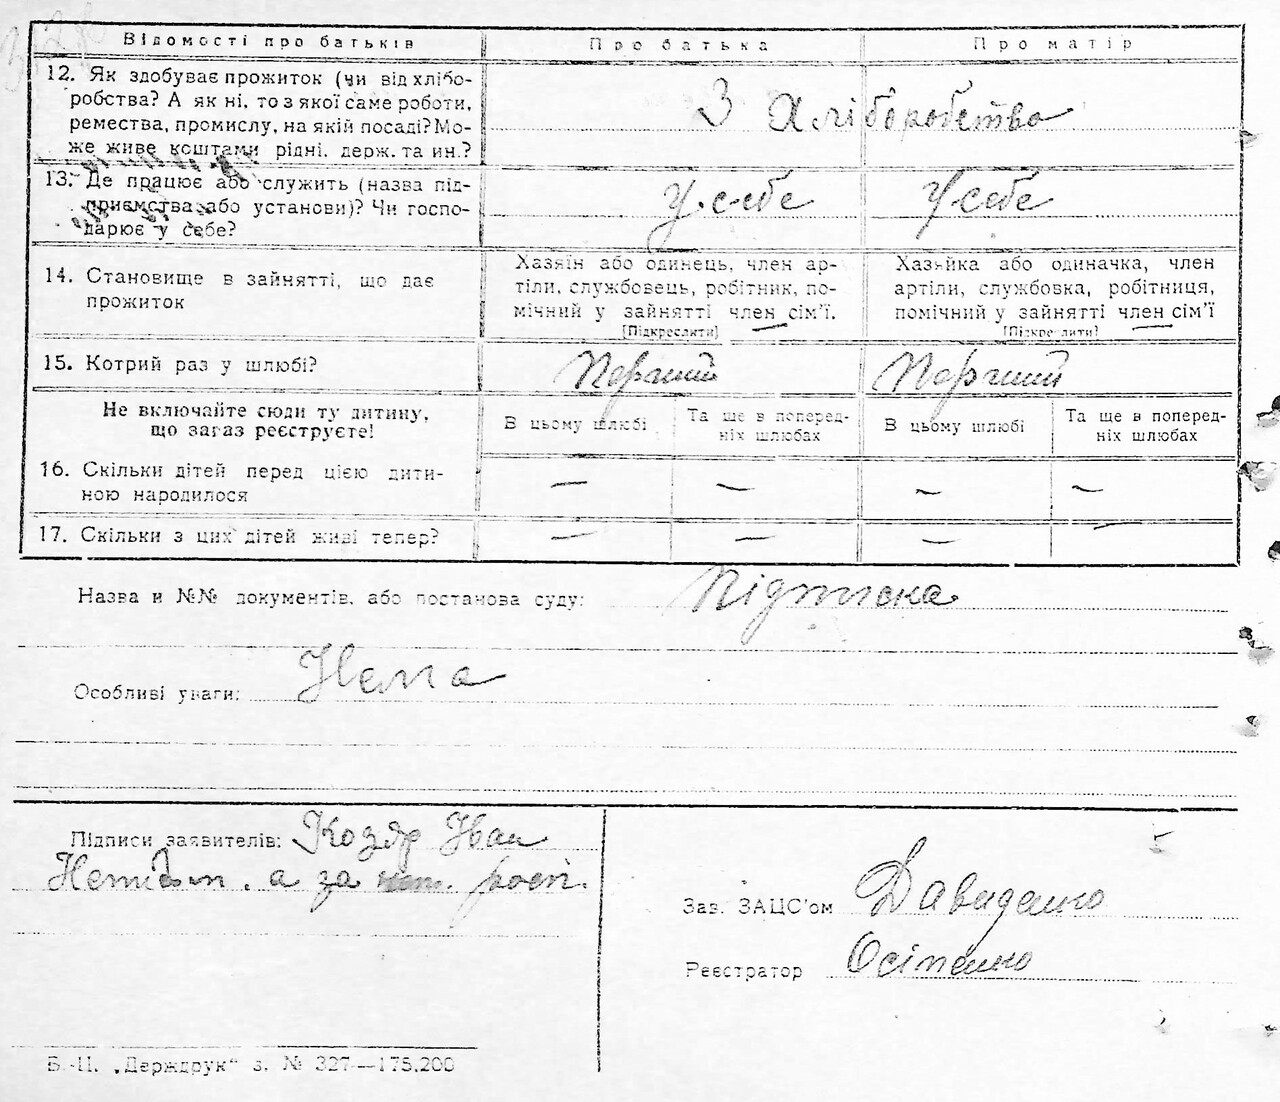 Відомості про батьків
Про батька
Про матір
12. Як здобуває прожиток (чи від хлібо-
робства? А як ні, то з якої саме роботи,
ремества, промислу, на якій посаді? Мо-
же живе коштами рідні, держ. та ин.?
З хліборобства
13. Де працює або служить (назва під-
приємства або установи)? Чи госпо-
дарює у себе?
У себе
У себе
14. Становище в зайнятті, що дає
прожиток
Хазяїн або одинець, член ар-
тіли, службовець, робітник, по-
мічний у зайнятті член сім'ї.
[Підкреслити]
Хазяйка або одиначка, член
артіли, службовка, робітниця,
помічний у зайнятті член сім'ї
[Підкреслити]
15. Котрий раз у шлюбі?
Перший
Перший
Не включайте сюди ту дитину,
що зараз реєструєте!
В цьому шлюбі
Та ще в поперед-
ніх шлюбах
В цьому шлюбі
Та ще в поперед-
ніх шлюбах
16. Скільки дітей перед цією дити-
ною народилося
— — — —
17. Скільки з цих дітей живі тепер?
— — — —
Назва и №№ документів, або постанова суду: Підписка
Особливі уваги: Нема
Підписи заявителів: Козяр Іван
а за росп.
Зав. ЗАЦС'ом Давиденко
Реєстратор Осіпенко
Б.-Ц. „Держдрук" з. № 327—175.200